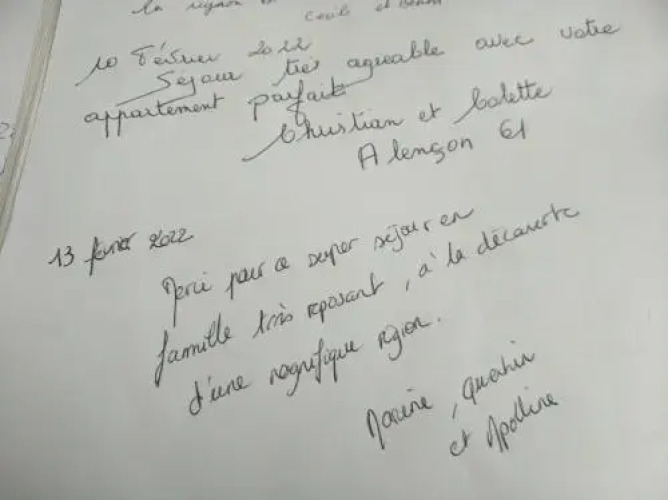 la région
Cécile et
10 Février 2022
Séjour très agréable avec votre
appartement parfait
Christian et Colette
Alençon 61
13 février 2022
Merci pour ce super séjour en
famille très reposant, à la découverte
d'une magnifique région.
Maxime, Quentin
et Apolline